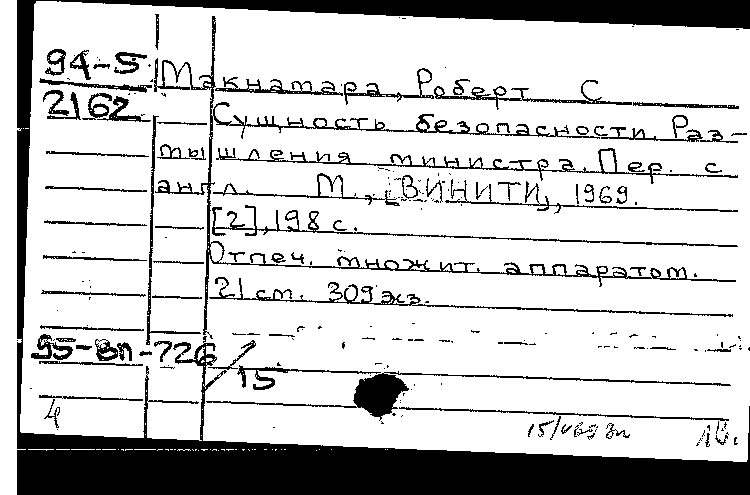 94-5
2162
Макнатара, Роберт С
Сущность безопасности. Раз-
мышления министра. Пер. с
англ. М., [ВИНИТИ], 1969.
[2], 198 с.
Отпеч. множит. аппаратом.
21 см. 309 экз.
95-вп-726
/15
4